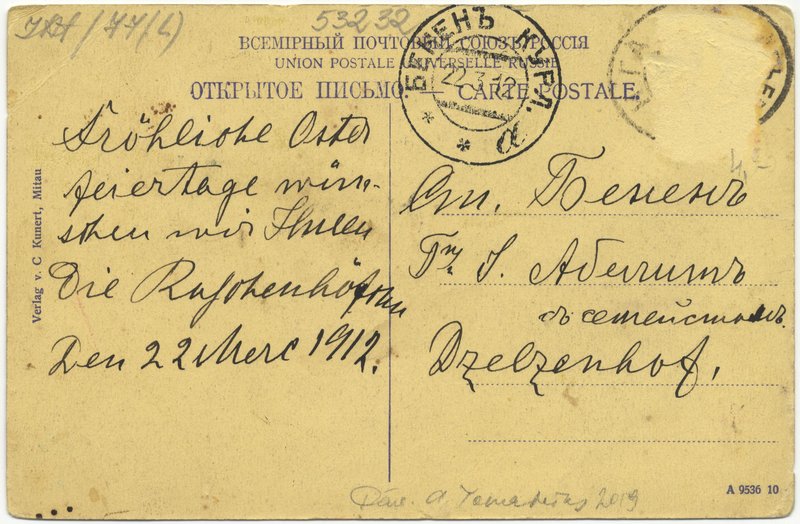 53232
ВСЕМІРНЫЙ ПОЧТОВЫЙ СОЮЗЪ. РОССІЯ
UNION POSTALE UNIVERSELLE RUSSIE
ОТКРЫТОЕ ПИСЬМО — CARTE POSTALE.
БЕНЕНЪ КУРЛ.
22.3.12
* * а
Fröhliche Oster
feiertage wün-
schen wir Ihnen
Die
Den 22 Merc 1912.
Verlag v. C Kunert, Mitau
Ст. Бененъ
съ семействомъ
Dzelzenhof,
A 9536 10
2019